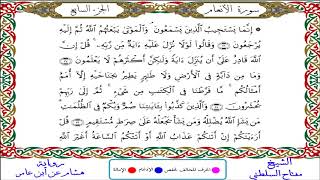 سورة الأنعام
الجزء السابع
إِنَّمَا يَسْتَجِيبُ الَّذِينَ يَسْمَعُونَ وَالْمَوْتَىٰ يَبْعَثُهُمُ اللَّهُ ثُمَّ إِلَيْهِ
يُرْجَعُونَ وَقَالُوا لَوْلَا نُزِّلَ عَلَيْهِ ءَايَةٌ مِّن رَّبِّهِ قُلْ إِنَّ
اللَّهَ قَادِرٌ عَلَىٰ أَن يُنَزِّلَ ءَايَةً وَلَٰكِنَّ أَكْثَرَهُمْ لَا يَعْلَمُونَ
وَمَا مِن دَابَّةٍ فِي الْأَرْضِ وَلَا طَائِرٍ يَطِيرُ بِجَنَاحَيْهِ إِلَّا أُمَمٌ
أَمْثَالُكُم مَّا فَرَّطْنَا فِي الْكِتَابِ مِن شَيْءٍ ثُمَّ إِلَىٰ رَبِّهِمْ
يُحْشَرُونَ وَالَّذِينَ كَذَّبُوا بِـَٔايَاتِنَا صُمٌّ وَبُكْمٌ فِي الظُّلُمَاتِ
مَن يَشَإِ اللَّهُ يُضْلِلْهُ وَمَن يَشَأْ يَجْعَلْهُ عَلَىٰ صِرَاطٍ مُّسْتَقِيمٍ قُلْ
أَرَءَيْتَكُمْ إِنْ أَتَىٰكُمْ عَذَابُ اللَّهِ أَوْ أَتَتْكُمُ السَّاعَةُ أَغَيْرَ اللَّهِ
الشيخ
مفتاح السلطني
الحرف المخالف لحفص الإدغام الإمالة
رواية
هشام عن ابن عامر